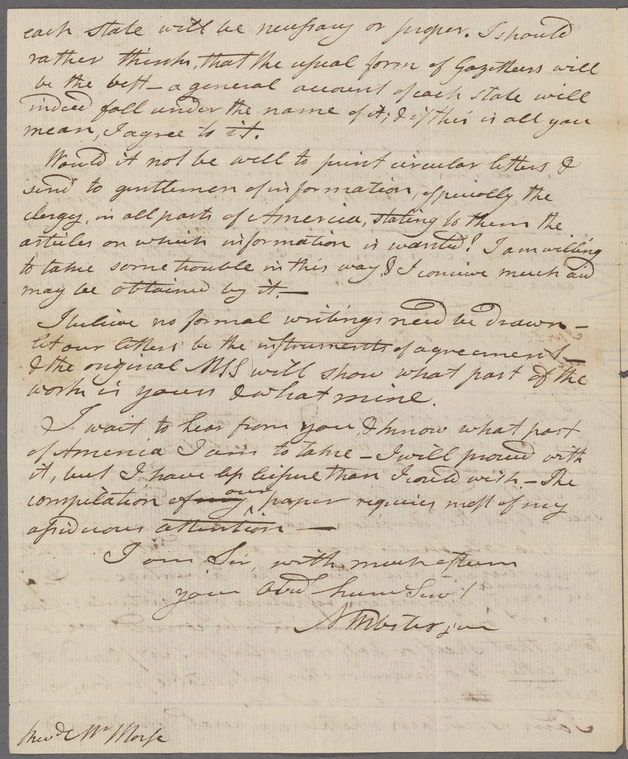 each state will be necessary or proper. I should
rather think, that the usual form of Gazetteers will
be the best — a general account of each state will
indeed fall under the name of it; & if this is all you
mean, I agree to it.
Would it not be well to print circular letters &
send to gentlemen of information, especially the
clergy, in all parts of America, stating to them the
articles on which information is wanted? I am willing
to take some trouble in this way, & I conceive much aid
may be obtained by it. —
I believe no formal writings need be drawn —
let our letters be the instruments of agreement —
& the original MSS will show what part of the
work is yours & what mine.
I wait to hear from you, & know what part
of America I am to take — I will proceed with
it, but I have less leisure than I could wish — The
compilation of our paper requires most of my
assiduous attention —
I am Sir, with much esteem
your Obedt humle Servt
N Webster jun
Revd Mr Morse